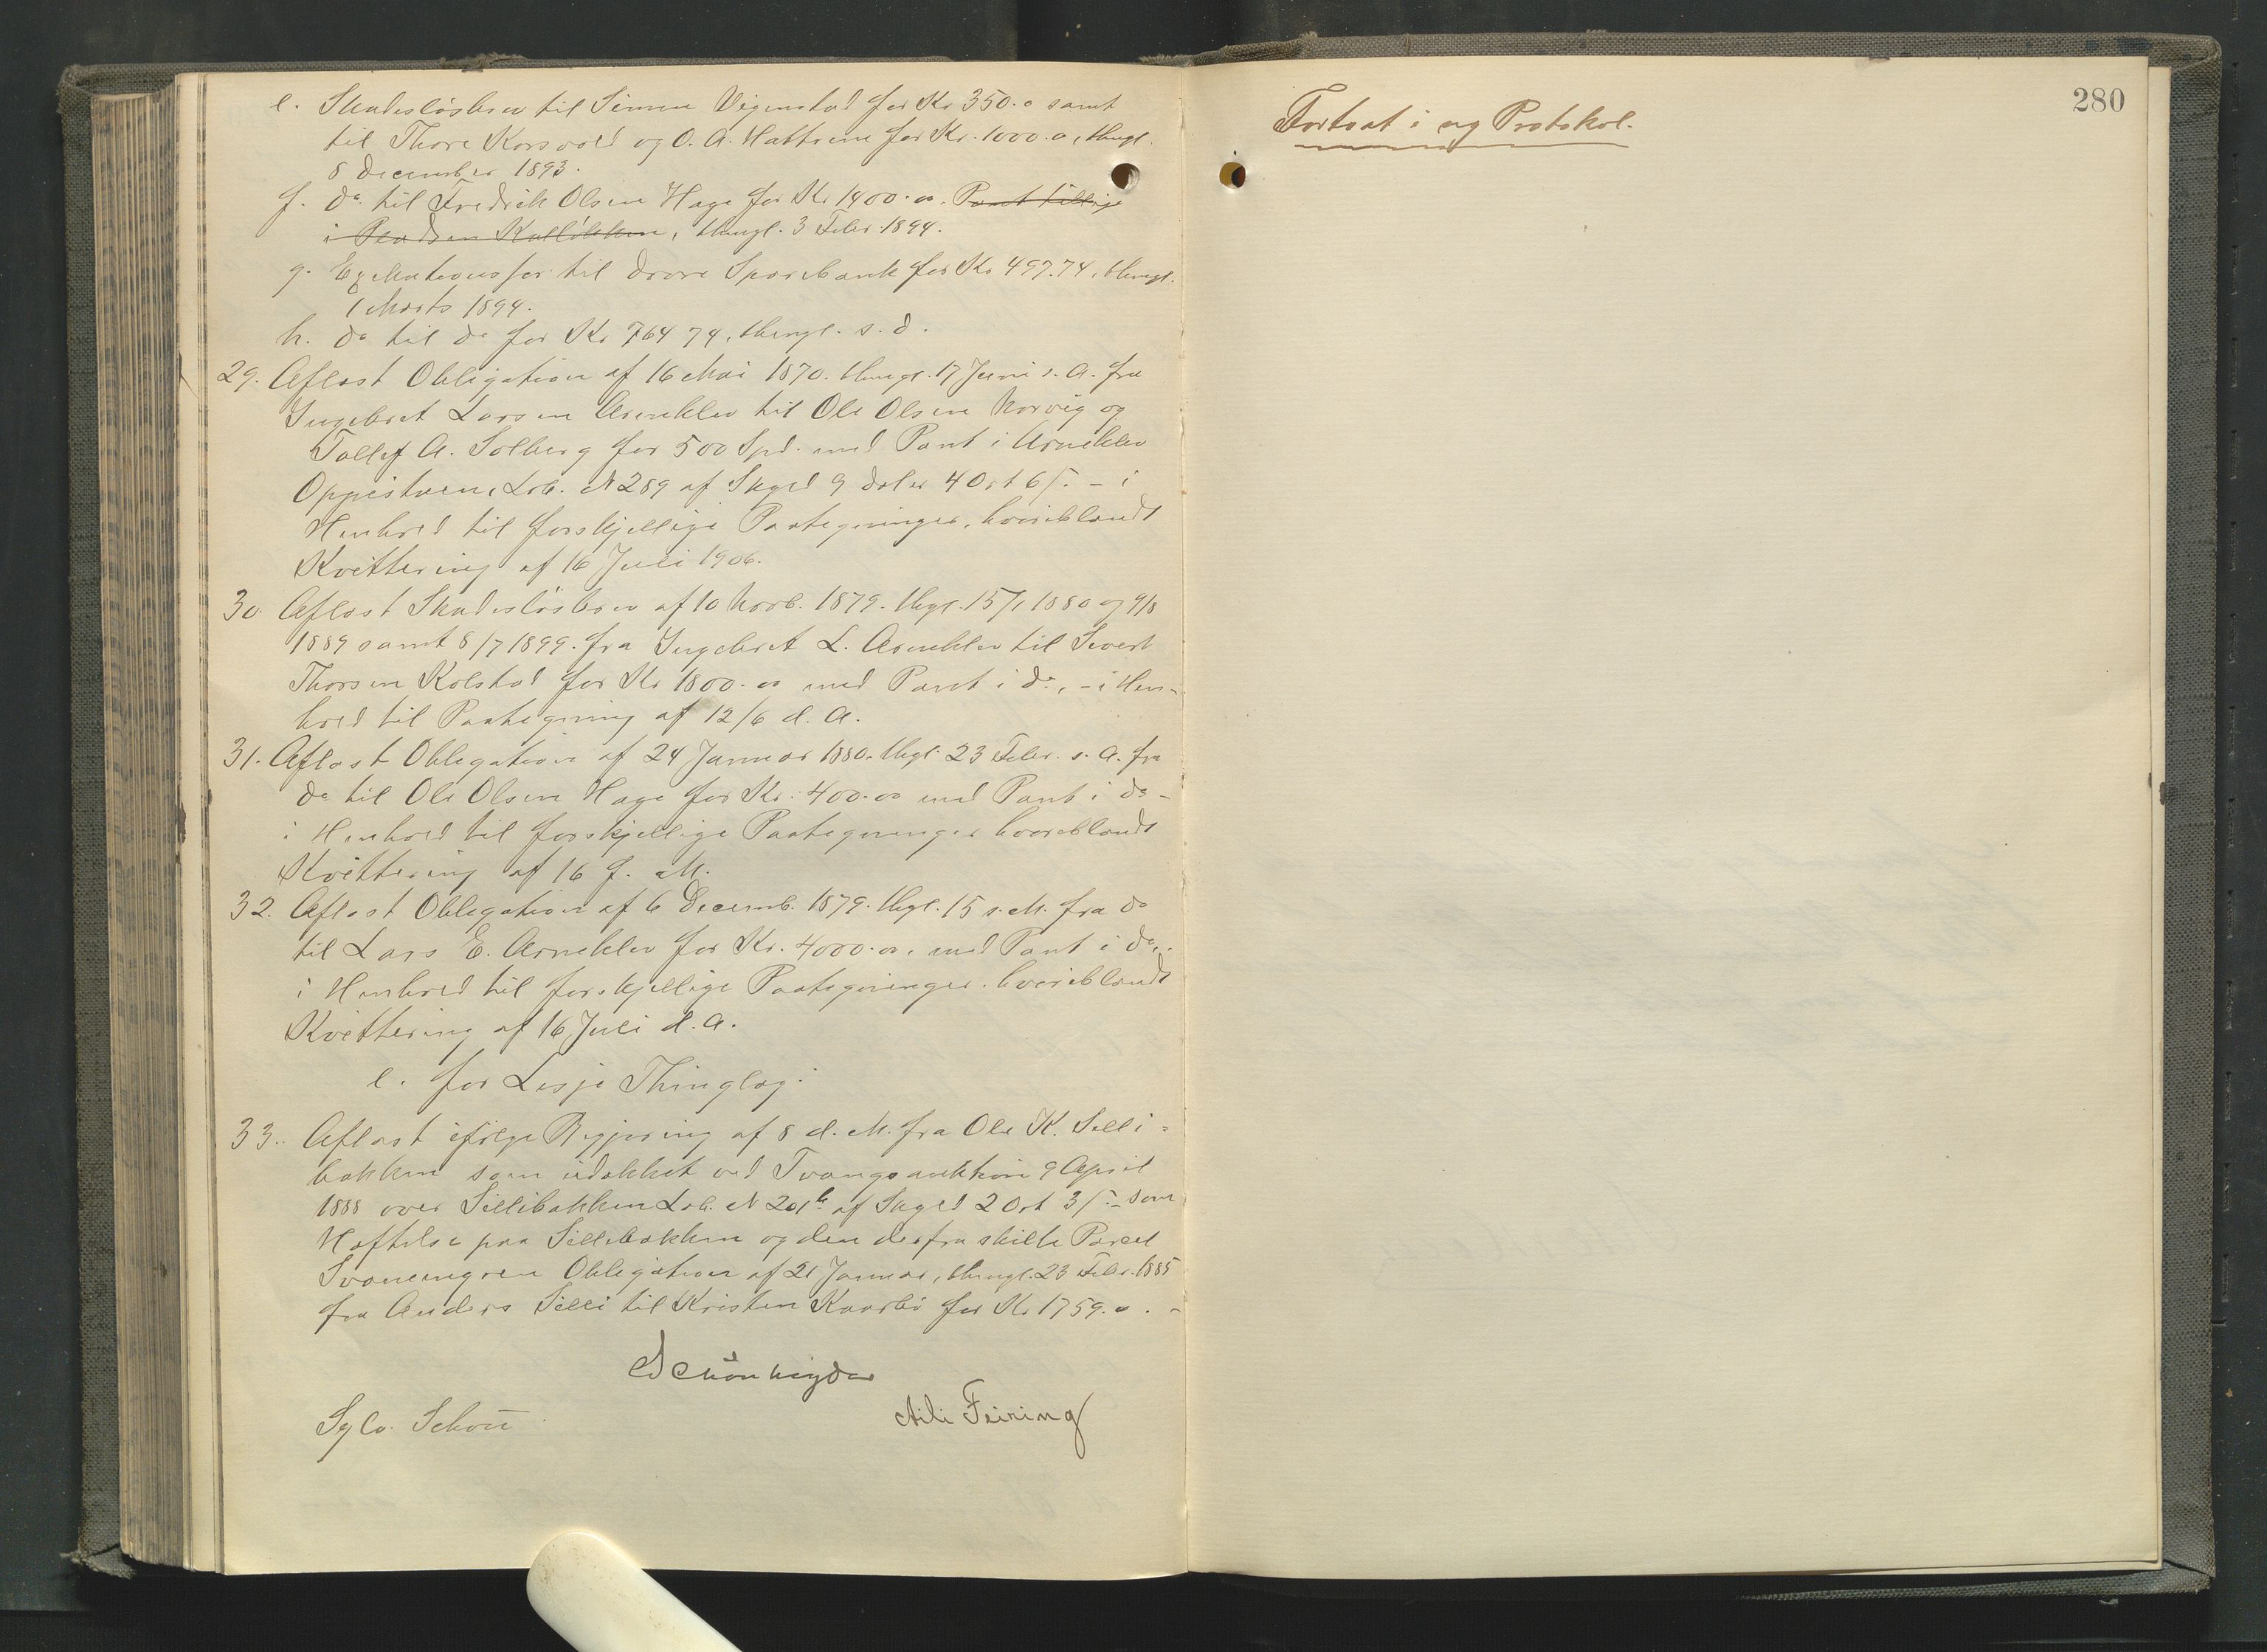 e. Skadesløsbrev til Simen Vigenstad for Kr 350.o samt
til Thore Korsvold og O. A. Hattrem for Kr. 1000.o, thingl.
8 December 1893.
f. do til Fredrik Olsen Hage for Kr 1400.oo. Pant tillige
i Pladsen Kalløkken, thingl. 3 Febr 1894.
g. Exekutionsfor. til Dovre Sparebank for Kr 497.74, thingl.
1 Marts 1894.
h. do til do for Kr 764 74, thingl. s. d.
29. Aflæst Obligation af 16 Mai 1870. thingl. 17 Juni s. A. fra
Ingebret Larsen Arneklev til Ole Olsen Norvig og
Tollef A. Solberg for 500 Spd. med Pant i Arneklev
Oppistuen, Lob. N 289 af Skyld 9 Daler 4 Ort 6 ſ. - i
Henhold til forskjellige Paategninger, hvoriblandt
Kvittering af 16 Juli 1906.
30. Aflæst Skadesløsbrev af 10 Novb. 1879. thgl. 15/1 1880 og 9/8
1889 samt 8/7 1899. fra Ingebret L. Arneklev til Sivert
Thorsen Kolstad for Kr 1800.oo med Pant i do, - i Hen-
hold til Paategning af 12/6 d. A.
31. Aflæst Obligation af 24 Januar 1880. thgl. 23 Febr. s. A. fra
do til Ole Olsen Hage for Kr. 400.oo med Pant i do -
i Henhold til forskjellige Paategninger hvoriblandt
Kvittering af 16 f. M.
32. Aflæst Obligation af 6 Decemb. 1879. thgl. 15 s. M. fra do
til Lars E. Arneklev for Kr. 4000.oo. med Pant i do,-
i Henhold til forskjellige Paategninger. hvoriblandt
Kvittering af 16 Juli d. A.
e. for Lesje Thinglag:
33. Aflæst ifølge Begjæring af 8 d. M. fra Ole K. Selli-
bakken som udslettet ved Tvangsauktion 9 April
1888 over Sillibakken Lob. N 201b af Skyld 2 Ort 3 ſ. - som
Heftelse paa Sillibakken og den derfra skilte Parcel
Obligation af 21 Januar, thingl. 23 Febr. 1885
fra Anders Silli til Kristen Kaarbø for Kr 1759.o. -
Schönheyder
Sylv. Schou
Aili Feiring
280
Fortsat i ny Protokol.